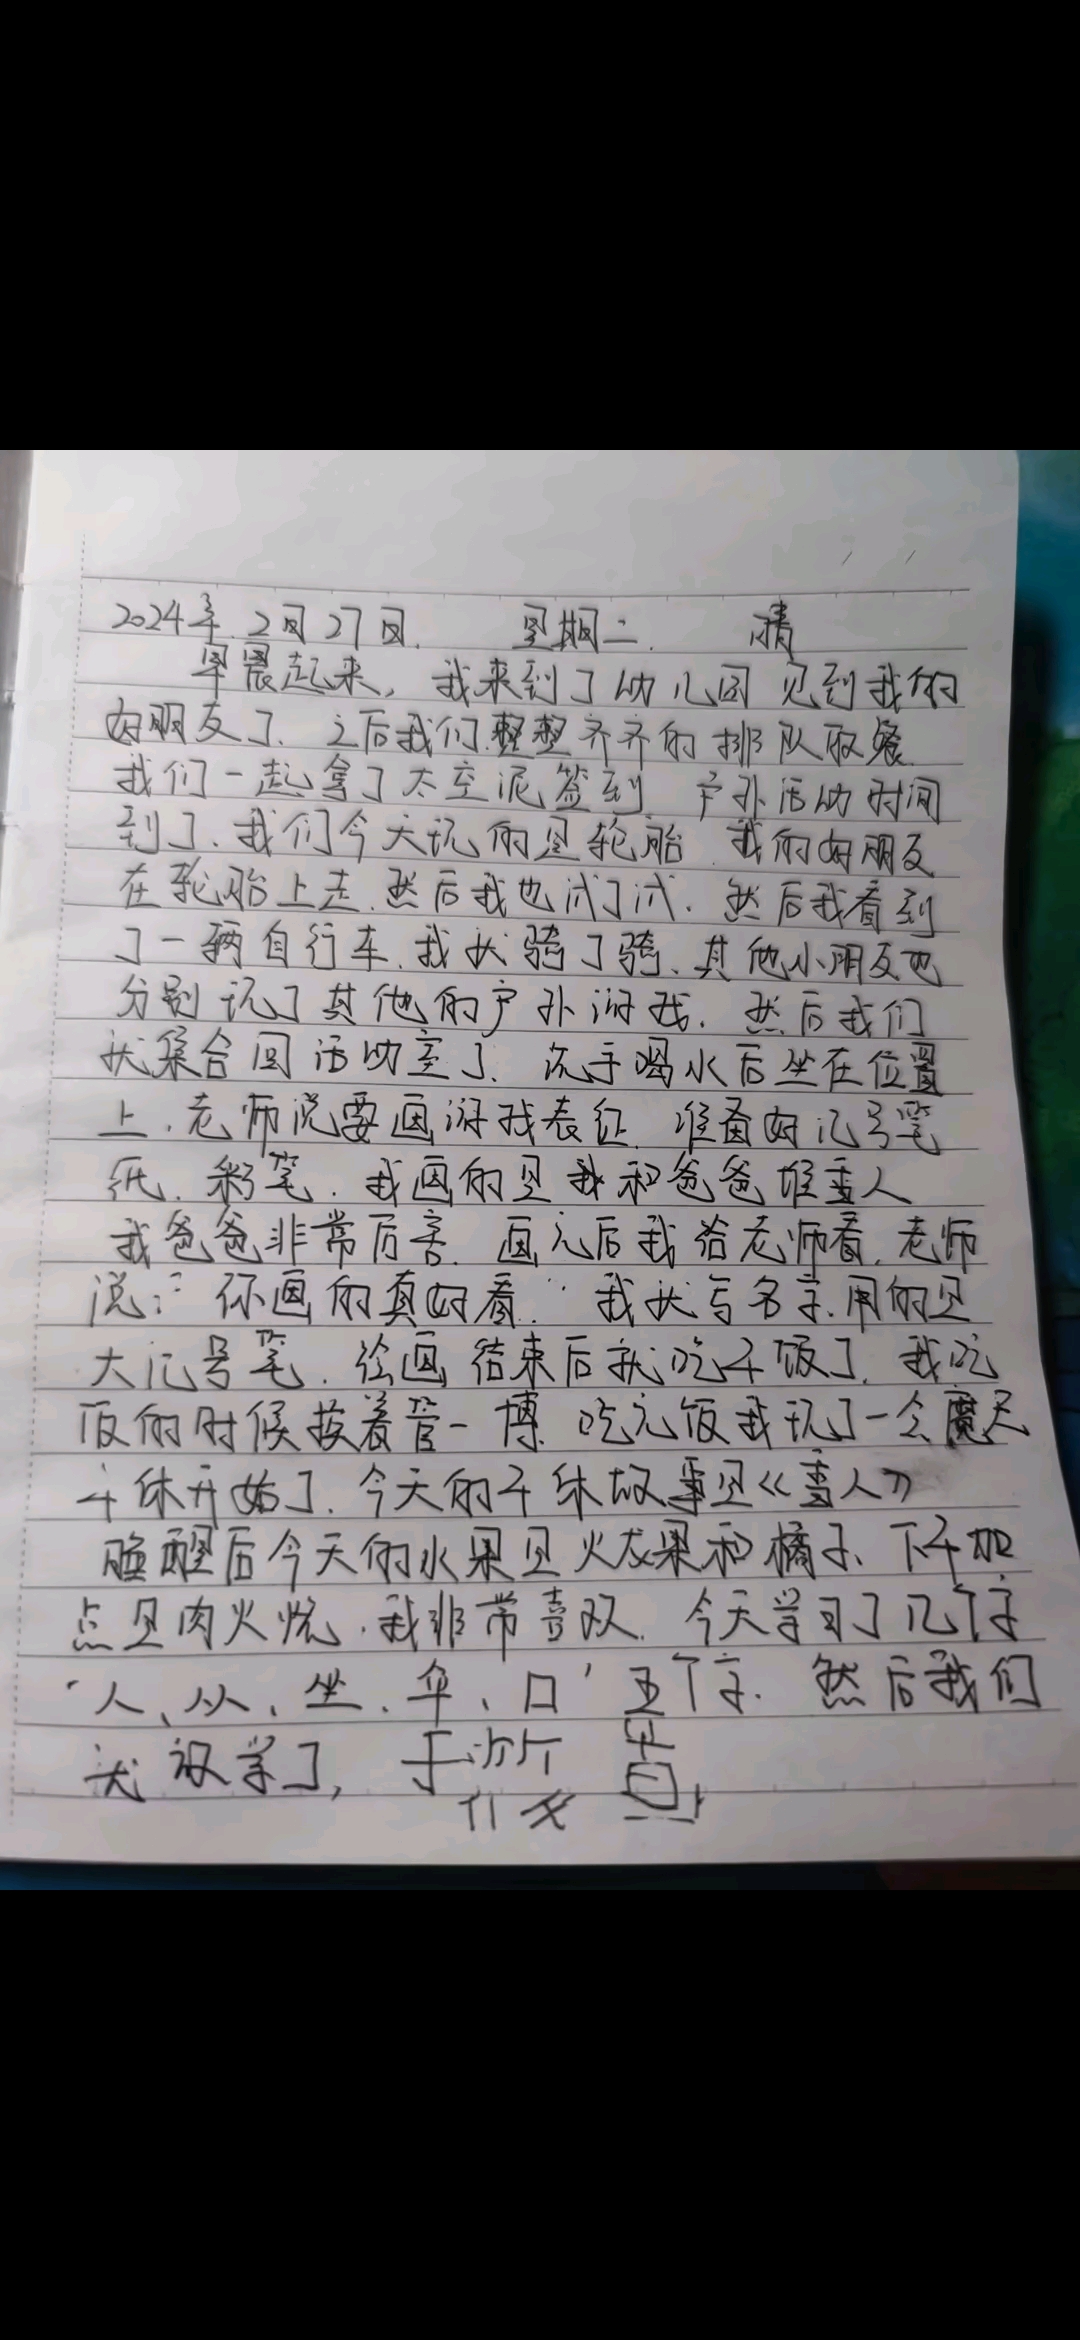 2024年2月27日. 星期二. 晴
早晨起来, 我来到了幼儿园 见到我的
好朋友了、之后我们整整齐齐的排队取餐
我们一起拿了太空泥签到 户外活动时间
到了、我们今天玩的是轮胎、我的好朋友
在轮胎上走.然后我也试了试. 然后我看到
了一辆自行车.我就骑了骑、其他小朋友也
分别玩了其他的户外游戏. 然后我们
就集合回活动室了、洗手喝水后坐在位置
上.老师说要画游戏表征 准备好记号笔
纸、彩笔.我画的是我和爸爸堆雪人
我爸爸非常厉害 画完后我给老师看.老师
说:“你画的真好看.” 我就写名字.用的是
大记号笔.绘画结束后就吃午饭了.我吃
饭的时候挨着管一博 吃完饭我玩了一会魔尺
午休开始了.今天的午休故事是《雪人》
睡醒后今天的水果是火龙果和橘子、下午加
点是肉火烧.我非常喜欢.今天学习了几个字
“人、从、坐、伞、口”五个字. 然后我们
就放学了,